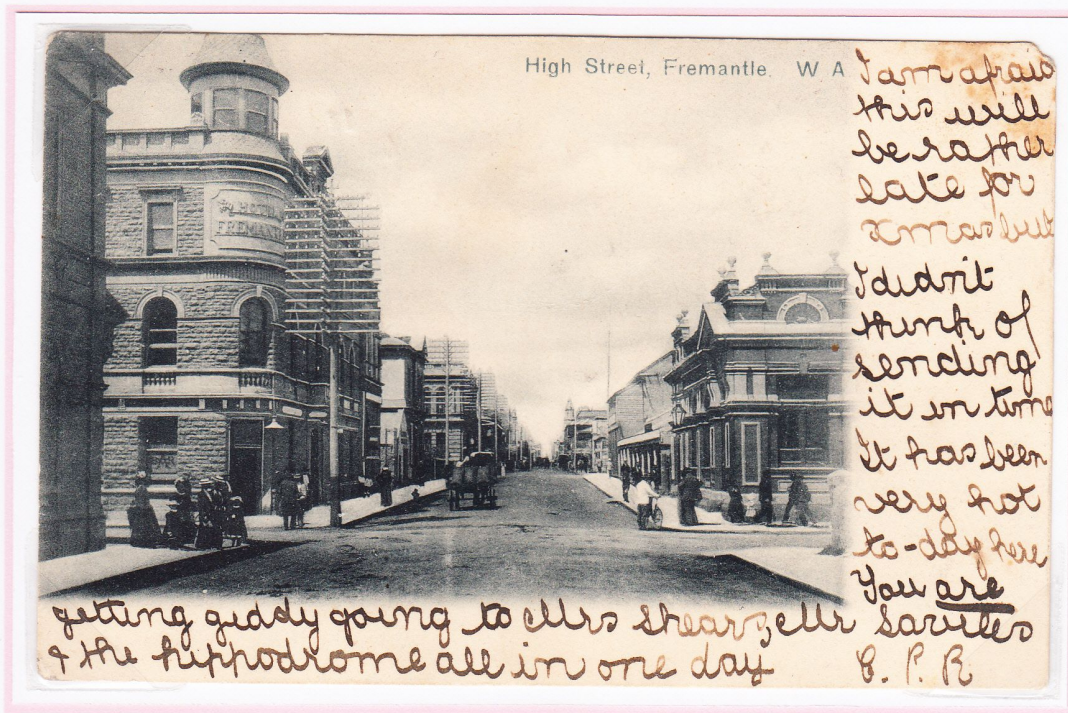 High Street, Fremantle. W A
HOTEL
FREMANTLE
I am afraid
this will
be rather
late for
xmas but
I didn't
think of
sending
it in time
It has been
very hot
to-day here
You are
getting giddy going to Mrs Shears, Mr Savilles
& the hippodrome all in one day
C. P. R